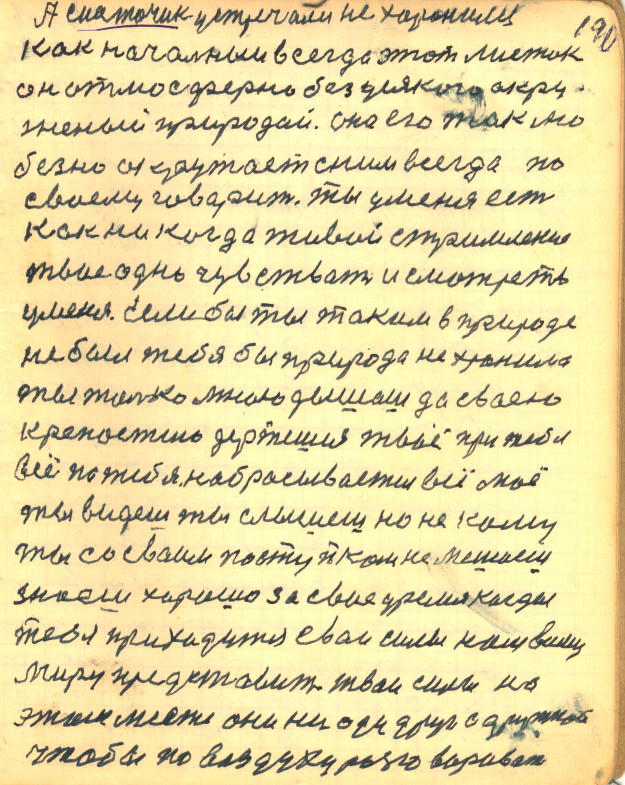 190
А встречали не хоронили
Как начальный всегда этот листок
он отмосферно без всякого окру-
женый природай. она его так лю
безно окружает сним всегда по
своему говарит. ты уменя есть
как никогда живой стримление
твое одно чувствать и смотреть
уменя. Если бы ты таким в природе
не был тебя бы природа не хранила
ты только мною дышиш да сваею
крепостию держешся твоё при тебя
всё по тебя, набрасывается всё моё
ты видеш ты слышеш но не кому
ты со сваим поступком не мешаеш
знаеш хорошо за свое время когда
тебя приходится сваи силы нашему
миру представит. твои силы на
этом месте они ни оди друг с дружкой
чтобы по воздуху разговариват